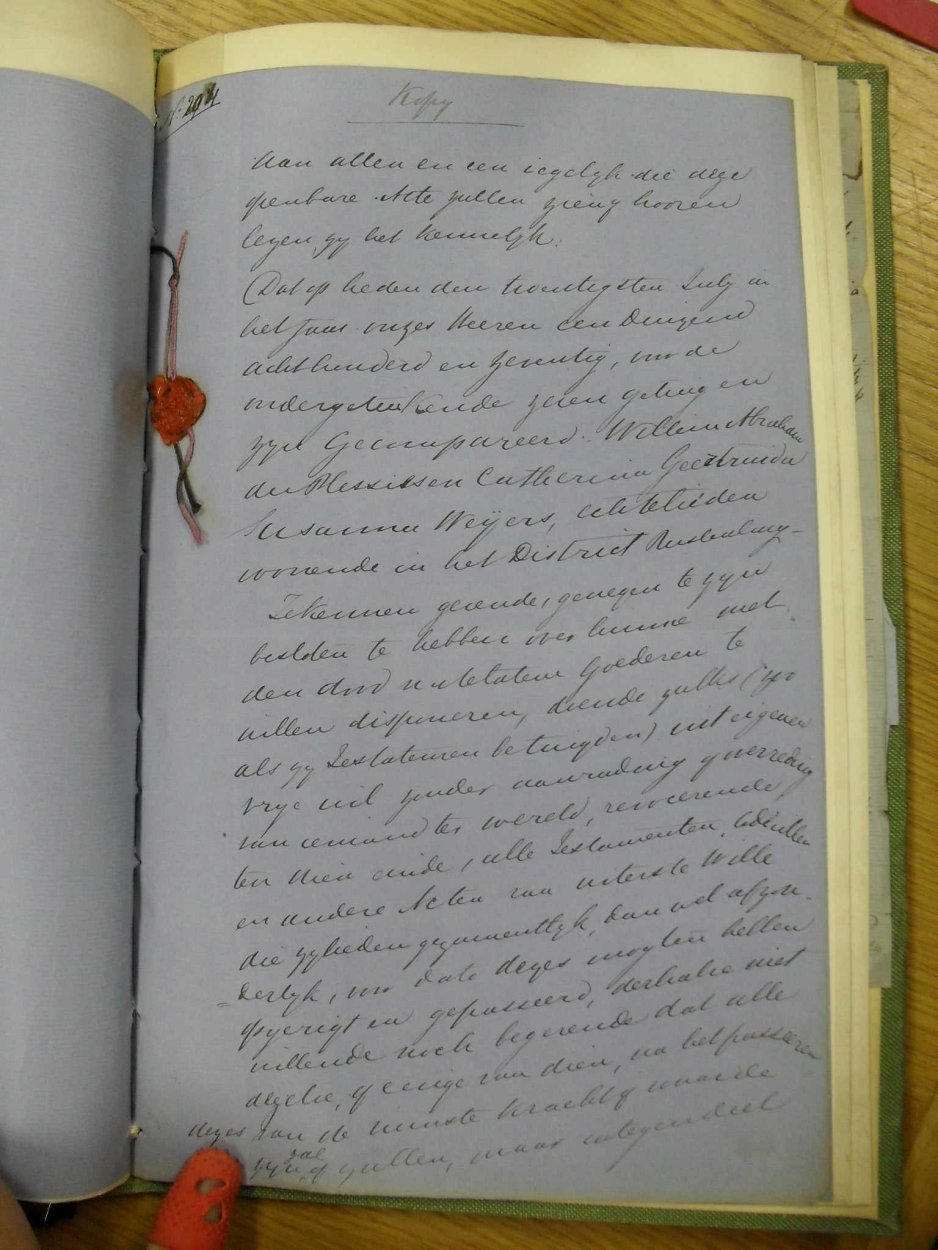 N. 294
Kopy
Aan allen en een iegelyk die deze
openbare Acte zullen zien, hooren
lezen zy het Kennelyk.
Dat op heden den twentigsten July in
het Jaar onzes Heeren een Duizend
achthonderd en zeventig, voor de
ondergetekende zeven getuigen
zyn Gecompareerd. Willem Abraham
du Plessis en Catherina Geertruida
Susanna Weyers, echtelieden
woonende in het District Rustenburg –
Te kennen gevende, genegen te zyn
besloten te hebben over hunne met
den dood natelaten Goederen te
willen disponeren, doende zulks (zoo
als zy Testateuren betuigden) uit eigenen
vrye wil zonder aanrading of overreding
van iemand ter wereld, revocerende
ten dien einde, alle Testamenten, Codicillen
en andere Acten van uiterste Wille
die zylieden gezamentlyk, dan wel afzon-
=derlyk, voor dato dezes mogten hebben
opgerigt en gepasseerd, derhalve niet
willende noch begerende dat alle
dezelve, of eenige van dien, na het passeeren
dezes van de minste kracht of waarde
zyn zal of zullen, maar integendeel